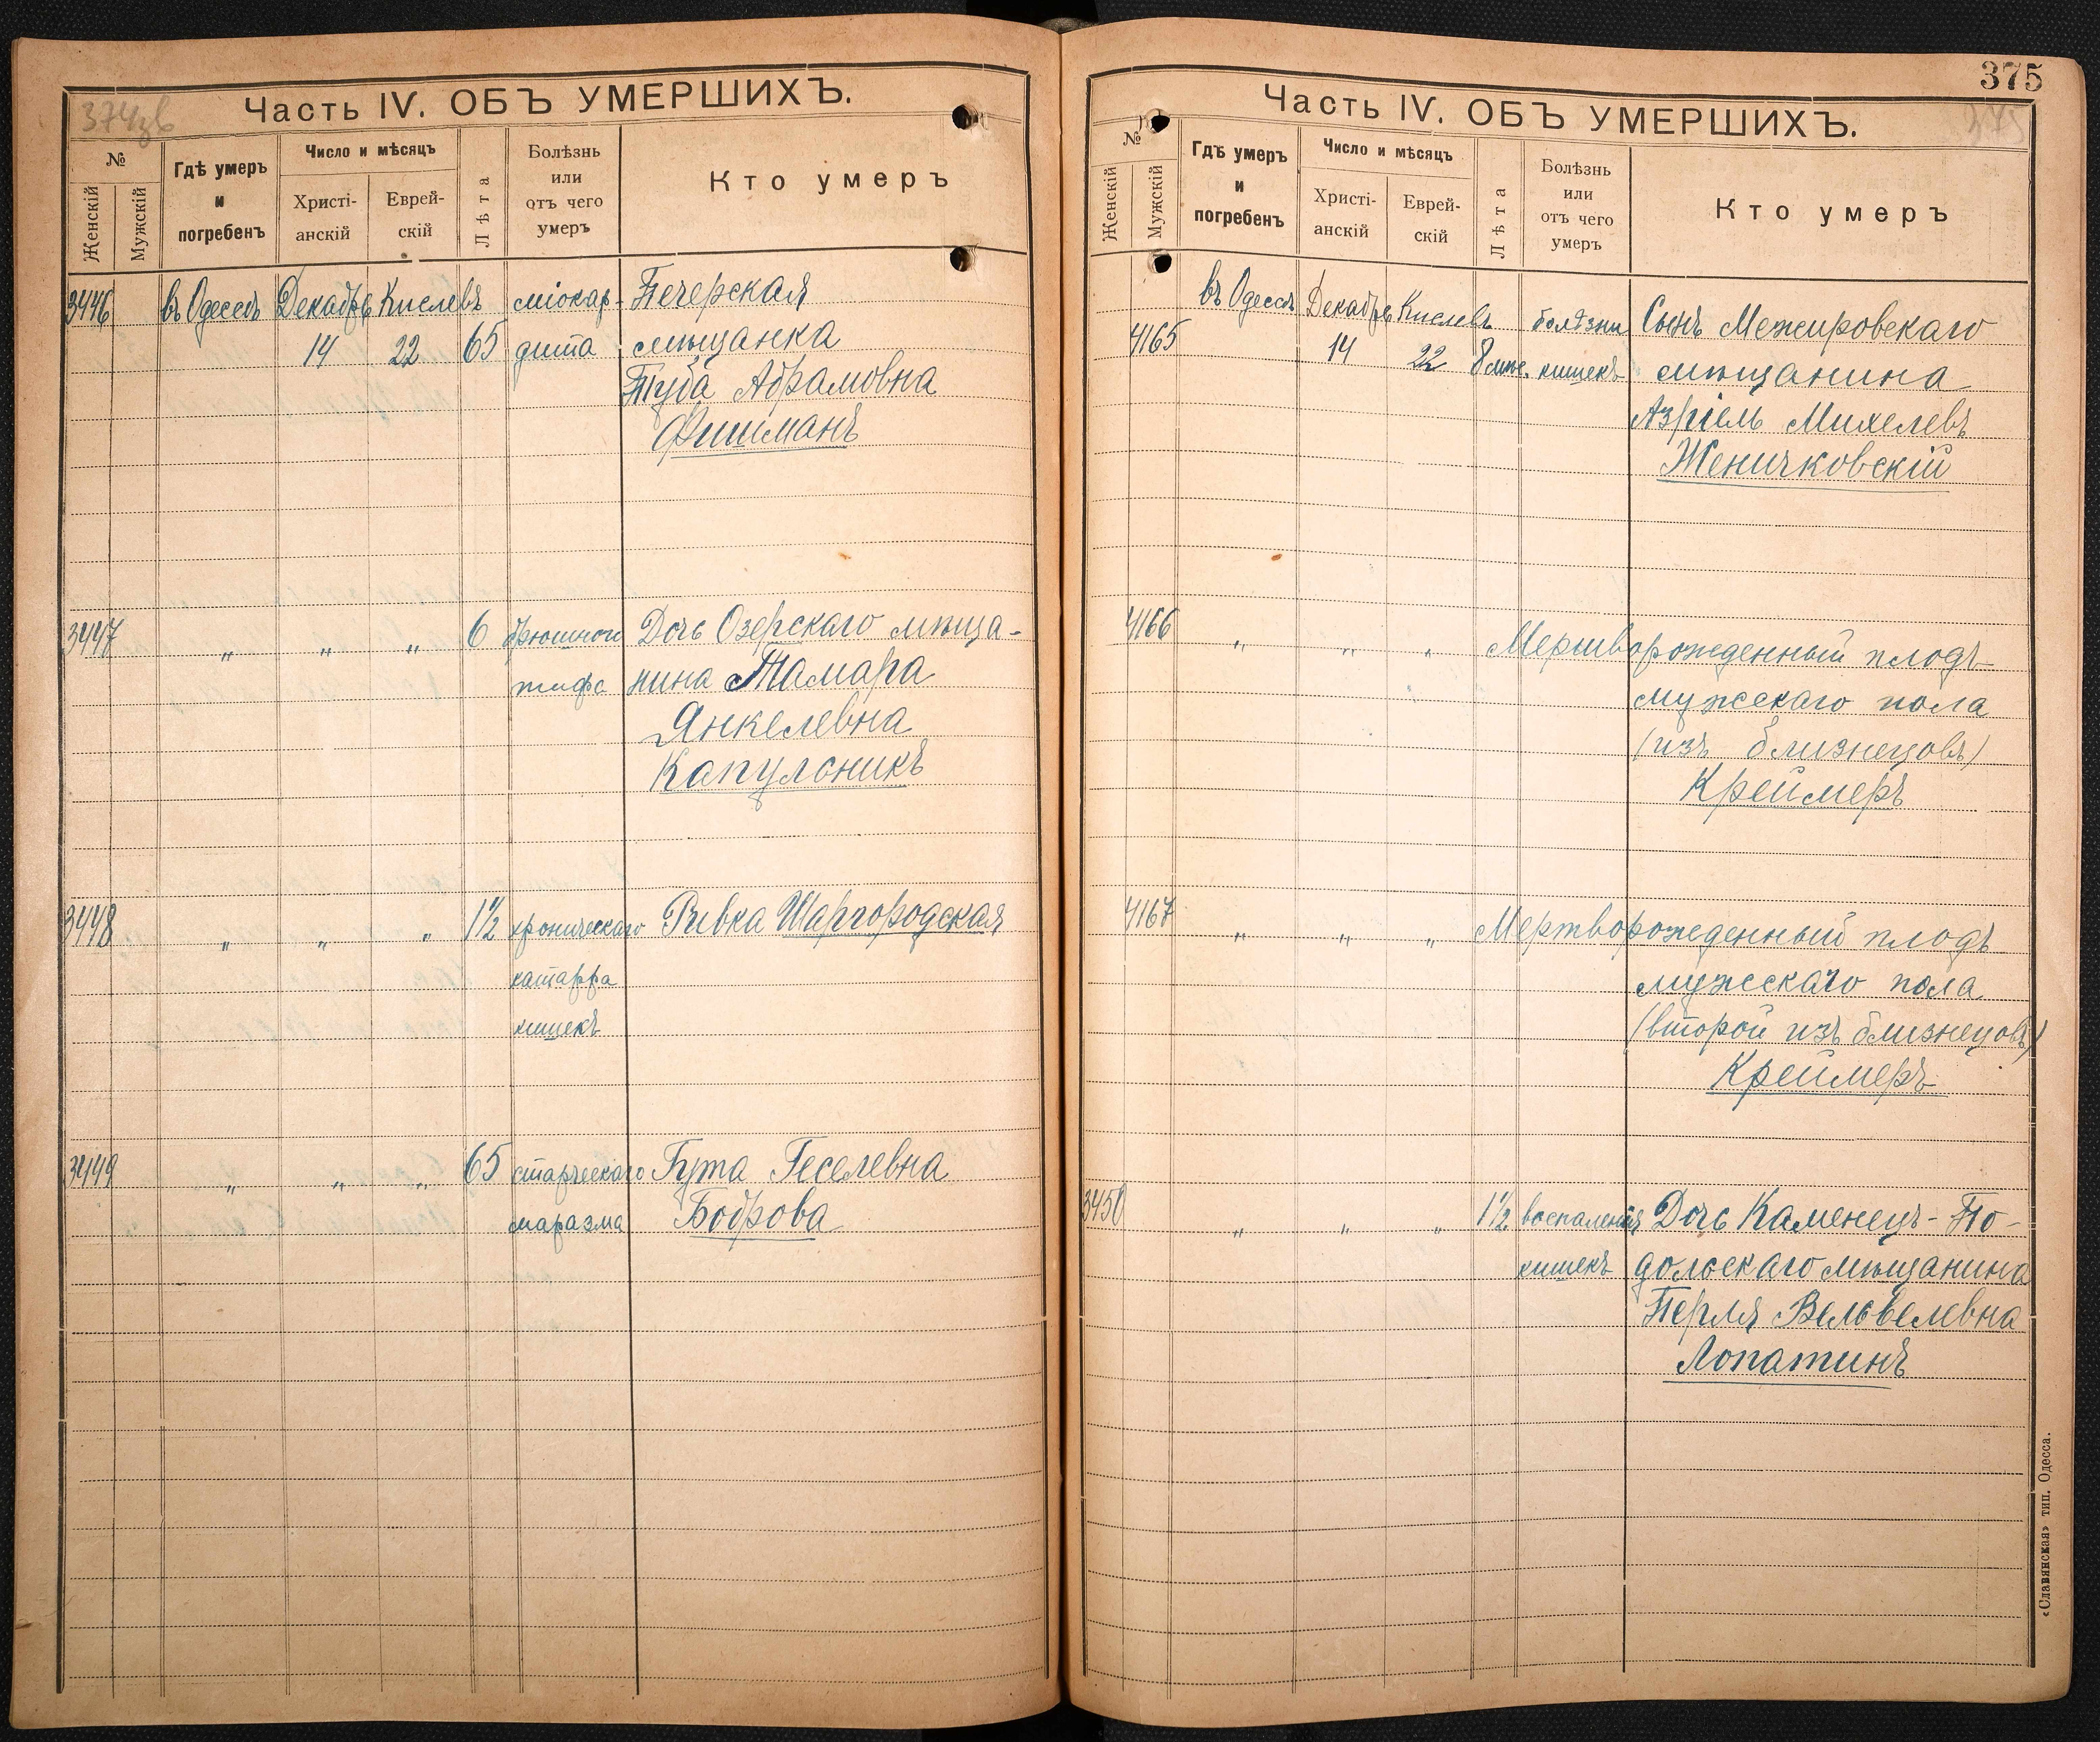 374зв
Часть IV. ОБЪ УМЕРШИХЪ.
№
Женскій
Мужскій
Гдѣ умеръ
и
погребенъ
Число и мѣсяцъ
Христі-
анскій
Еврей-
скій
Лѣта
Болѣзнь
или
отъ чего
умеръ
Кто умеръ
3446 въ Одессѣ Декабрь Кислевъ міокар- Печерская
14 22 65 дита мѣщанка
Туба Абрамовна
Фишманъ
3447 „ „ „ 6 брюшного Дочь Озерскаго мѣща-
тифа нина Тамара
Янкелевна
Капулсникъ
3448 „ „ „ 1½ хроническаго Ривка Шаргородская
катарра
кишекъ
3449 „ „ „ 65 старческаго Гута Геселевна
маразма Боброва
375
375
Часть IV. ОБЪ УМЕРШИХЪ.
№
Женскій
Мужскій
Гдѣ умеръ
и
погребенъ
Число и мѣсяцъ
Христі-
анскій
Еврей-
скій
Лѣта
Болѣзнь
или
отъ чего
умеръ
Кто умеръ
въ Одессѣ Декабрь Кислевъ болѣзни Сынъ Межировскаго
4165 14 22 8 мѣс. кишекъ мѣщанина
Азріель Михелевъ
Женичковскій
4166 „ „ „ Мертворожденный плодъ
мужскаго пола
(изъ близнецовъ)
Креймеръ
4167 „ „ „ Мертворожденный плодъ
мужскаго пола
(второй изъ близнецовъ)
Креймеръ
3450 „ „ „ 1½ воспаленія Дочь Каменецъ-По-
кишекъ дольскаго мѣщанина
Перля Вельвелевна
Лопатинъ
«Славянская» тип. Одесса.